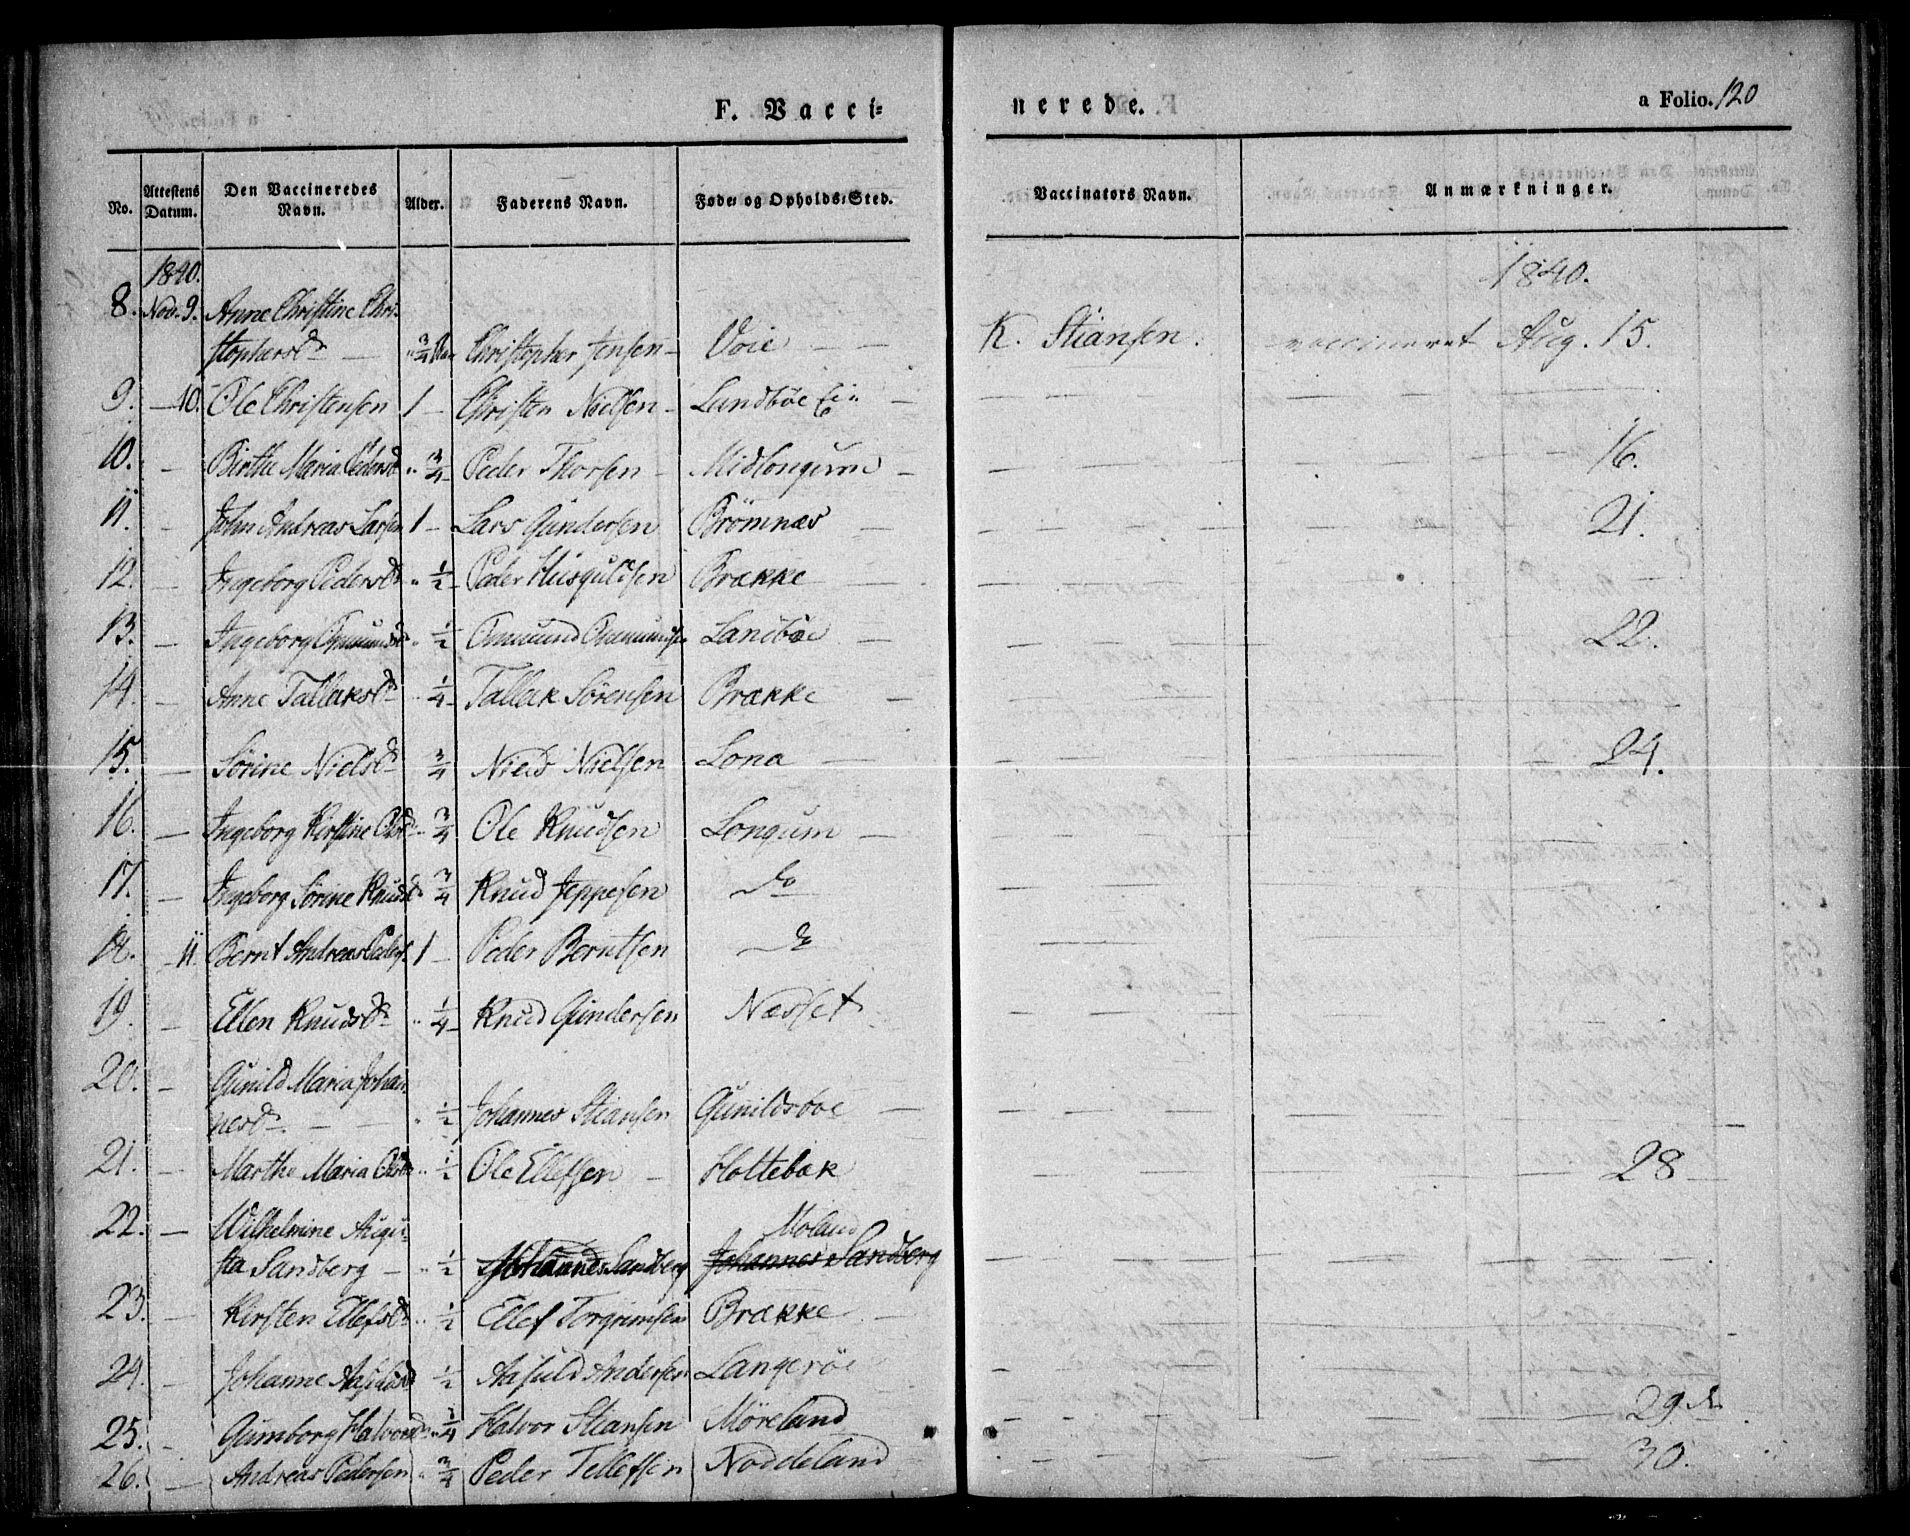 F. Vacci=
nerede.
a Folio. 120
No.
Attestens Datum.
Den Vaccineredes Navn.
Alder.
Faderens Navn.
Føde= og Opholds=Sted.
Vaccinators Navn.
Anmærkninger.
1840.
1840.
8. Nov. 9. Anne Christine Chri-
stophersd. — " ¾ Christopher Jensen — Voie — — K. Stiansen. vaccineret Aug. 15.
9. — 10. Ole Christensen 1 — Christen Nielsen — Landbøe —
10. — Birthe Maria Pedersd " ¾ Peder Thorsen — Midlongum — 16.
11. — John Andreas Larsen 1 — Lars Gundersen Brömnæs — 21.
12. — Ingeborg Pedersd " ½ Peder Brække —
13. — Ingeborg " ½ Landbøe — 22.
14. — Anne Tallaksd " ¼ Tallak Sörensen Brække —
15. — Sörine Nielsd ¾ Niels Nielsen Lona — 24.
16. — Ingeborg Kirstine Olsd " ¾ Ole Knudsen Longum —
17. — Ingeborg Sörine Knudsd " ¾ Knud Jeppesen do
18. — 11. Bernt Andreas Peders. 1 — Peder Berntsen do
19. — Ellen Knudsd " ¼ Knud Gundersen Næsset
20. — Gunild Maria Johan-
nesd. — — " ½ Johannes Stiansen Gunildsboe —
21. — Marthe Maria Olsd " ½ Ole Ellefsen — Holtebak 28
22. — Wilhelmine Augu- Moland
sta Sandberg — " ½ Johannes Sandberg Johannes Sandberg
23. — Kirsten Ellefsd. " ½ Ellef Torgrimsen Brække —
24. — Johanne ½ Aasuld Andersen Langerøe
25. — Gunborg Halvorsd " ¼ Halvor Stiansen Möreland 29 do
26. — Andreas Pedersen " ¾ Peder Tellefsen Noddeland 30.